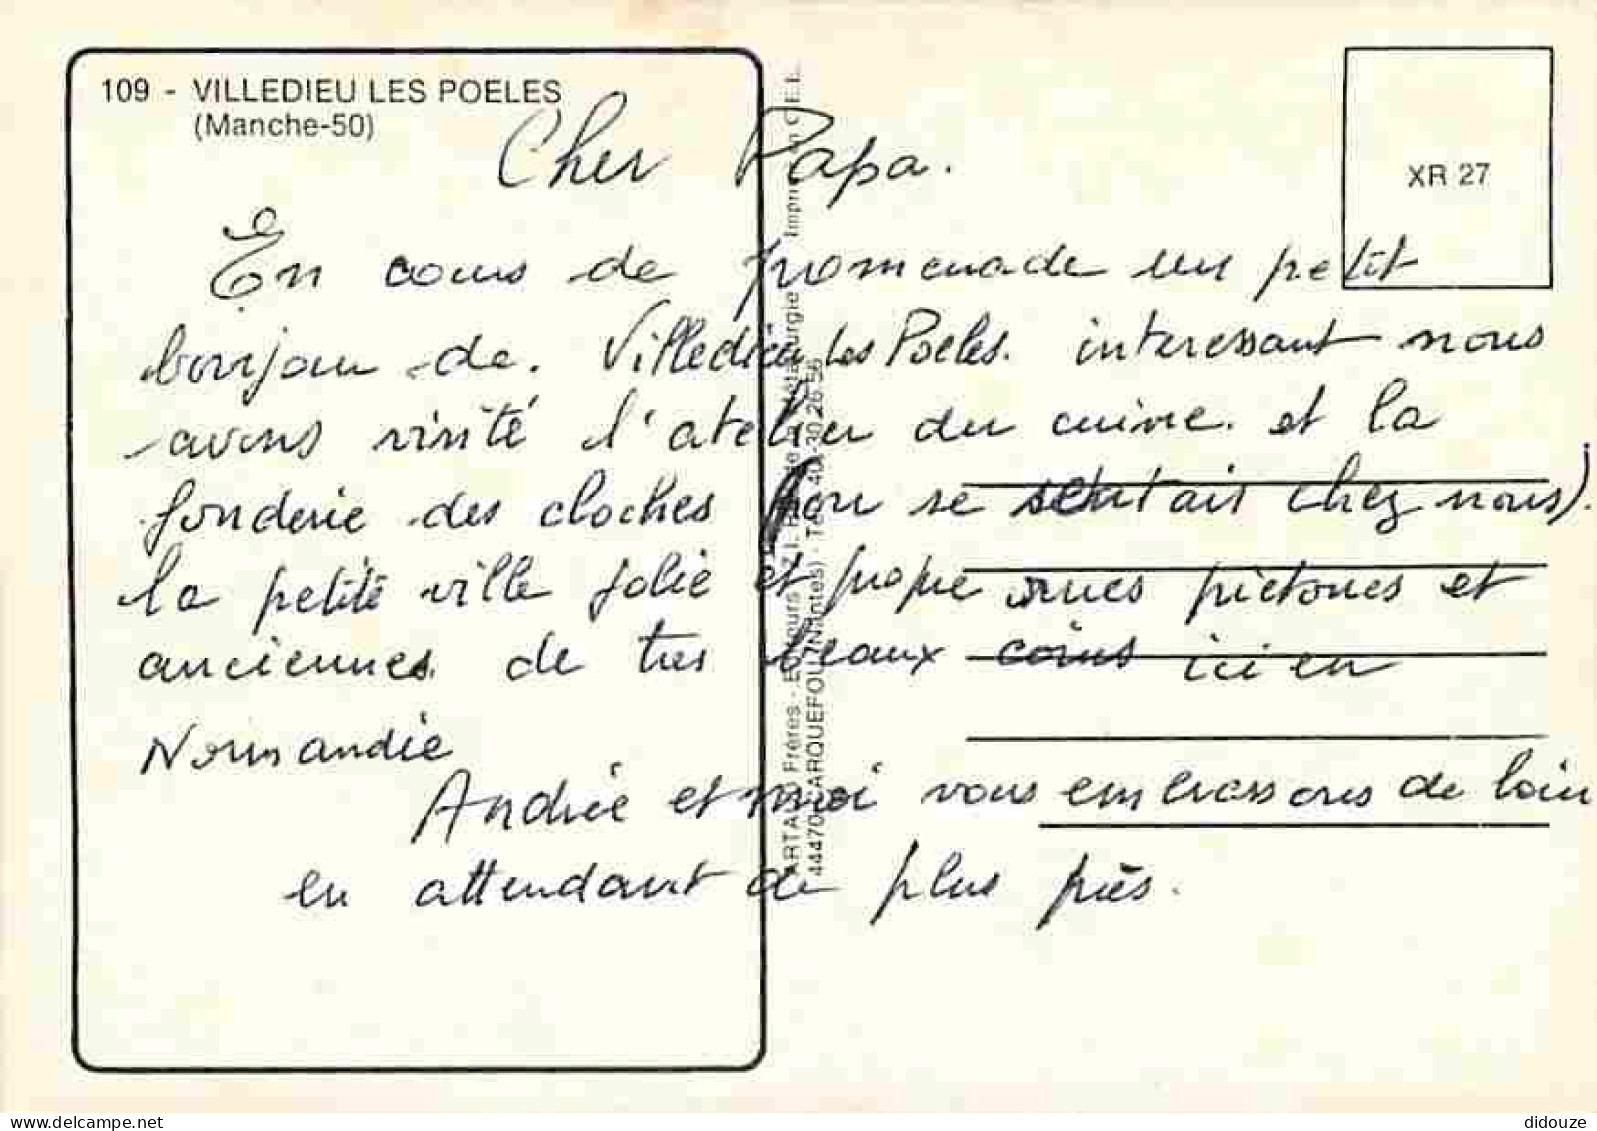 109 - VILLEDIEU LES POELES
(Manche-50)
XR 27
Cher Papa.
En cours de promenade un petit
bonjour de. Villedieu les Poeles. interessant nous
avons visité l'atelier du cuivre. et la
fonderie des cloches (on se sentait chez nous).
la petite ville jolie et propre rues pietonnes et
anciennes. de tres beaux coins ici en
Normandie
Andrée et moi vous embrassons de loin
en attendant de plus près.
ARTAUD Frères - Editeurs Z.I. Rue de la Métallurgie Imprimerie C.E.L.
44470 CARQUEFOU (Nantes) - Tél. 40-30.26.56
didouze
www.delcampe.net